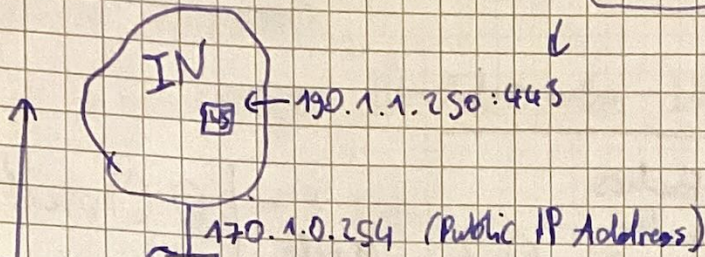 IN
WS
190.1.1.250:443
170.1.0.254 (Public IP Address)